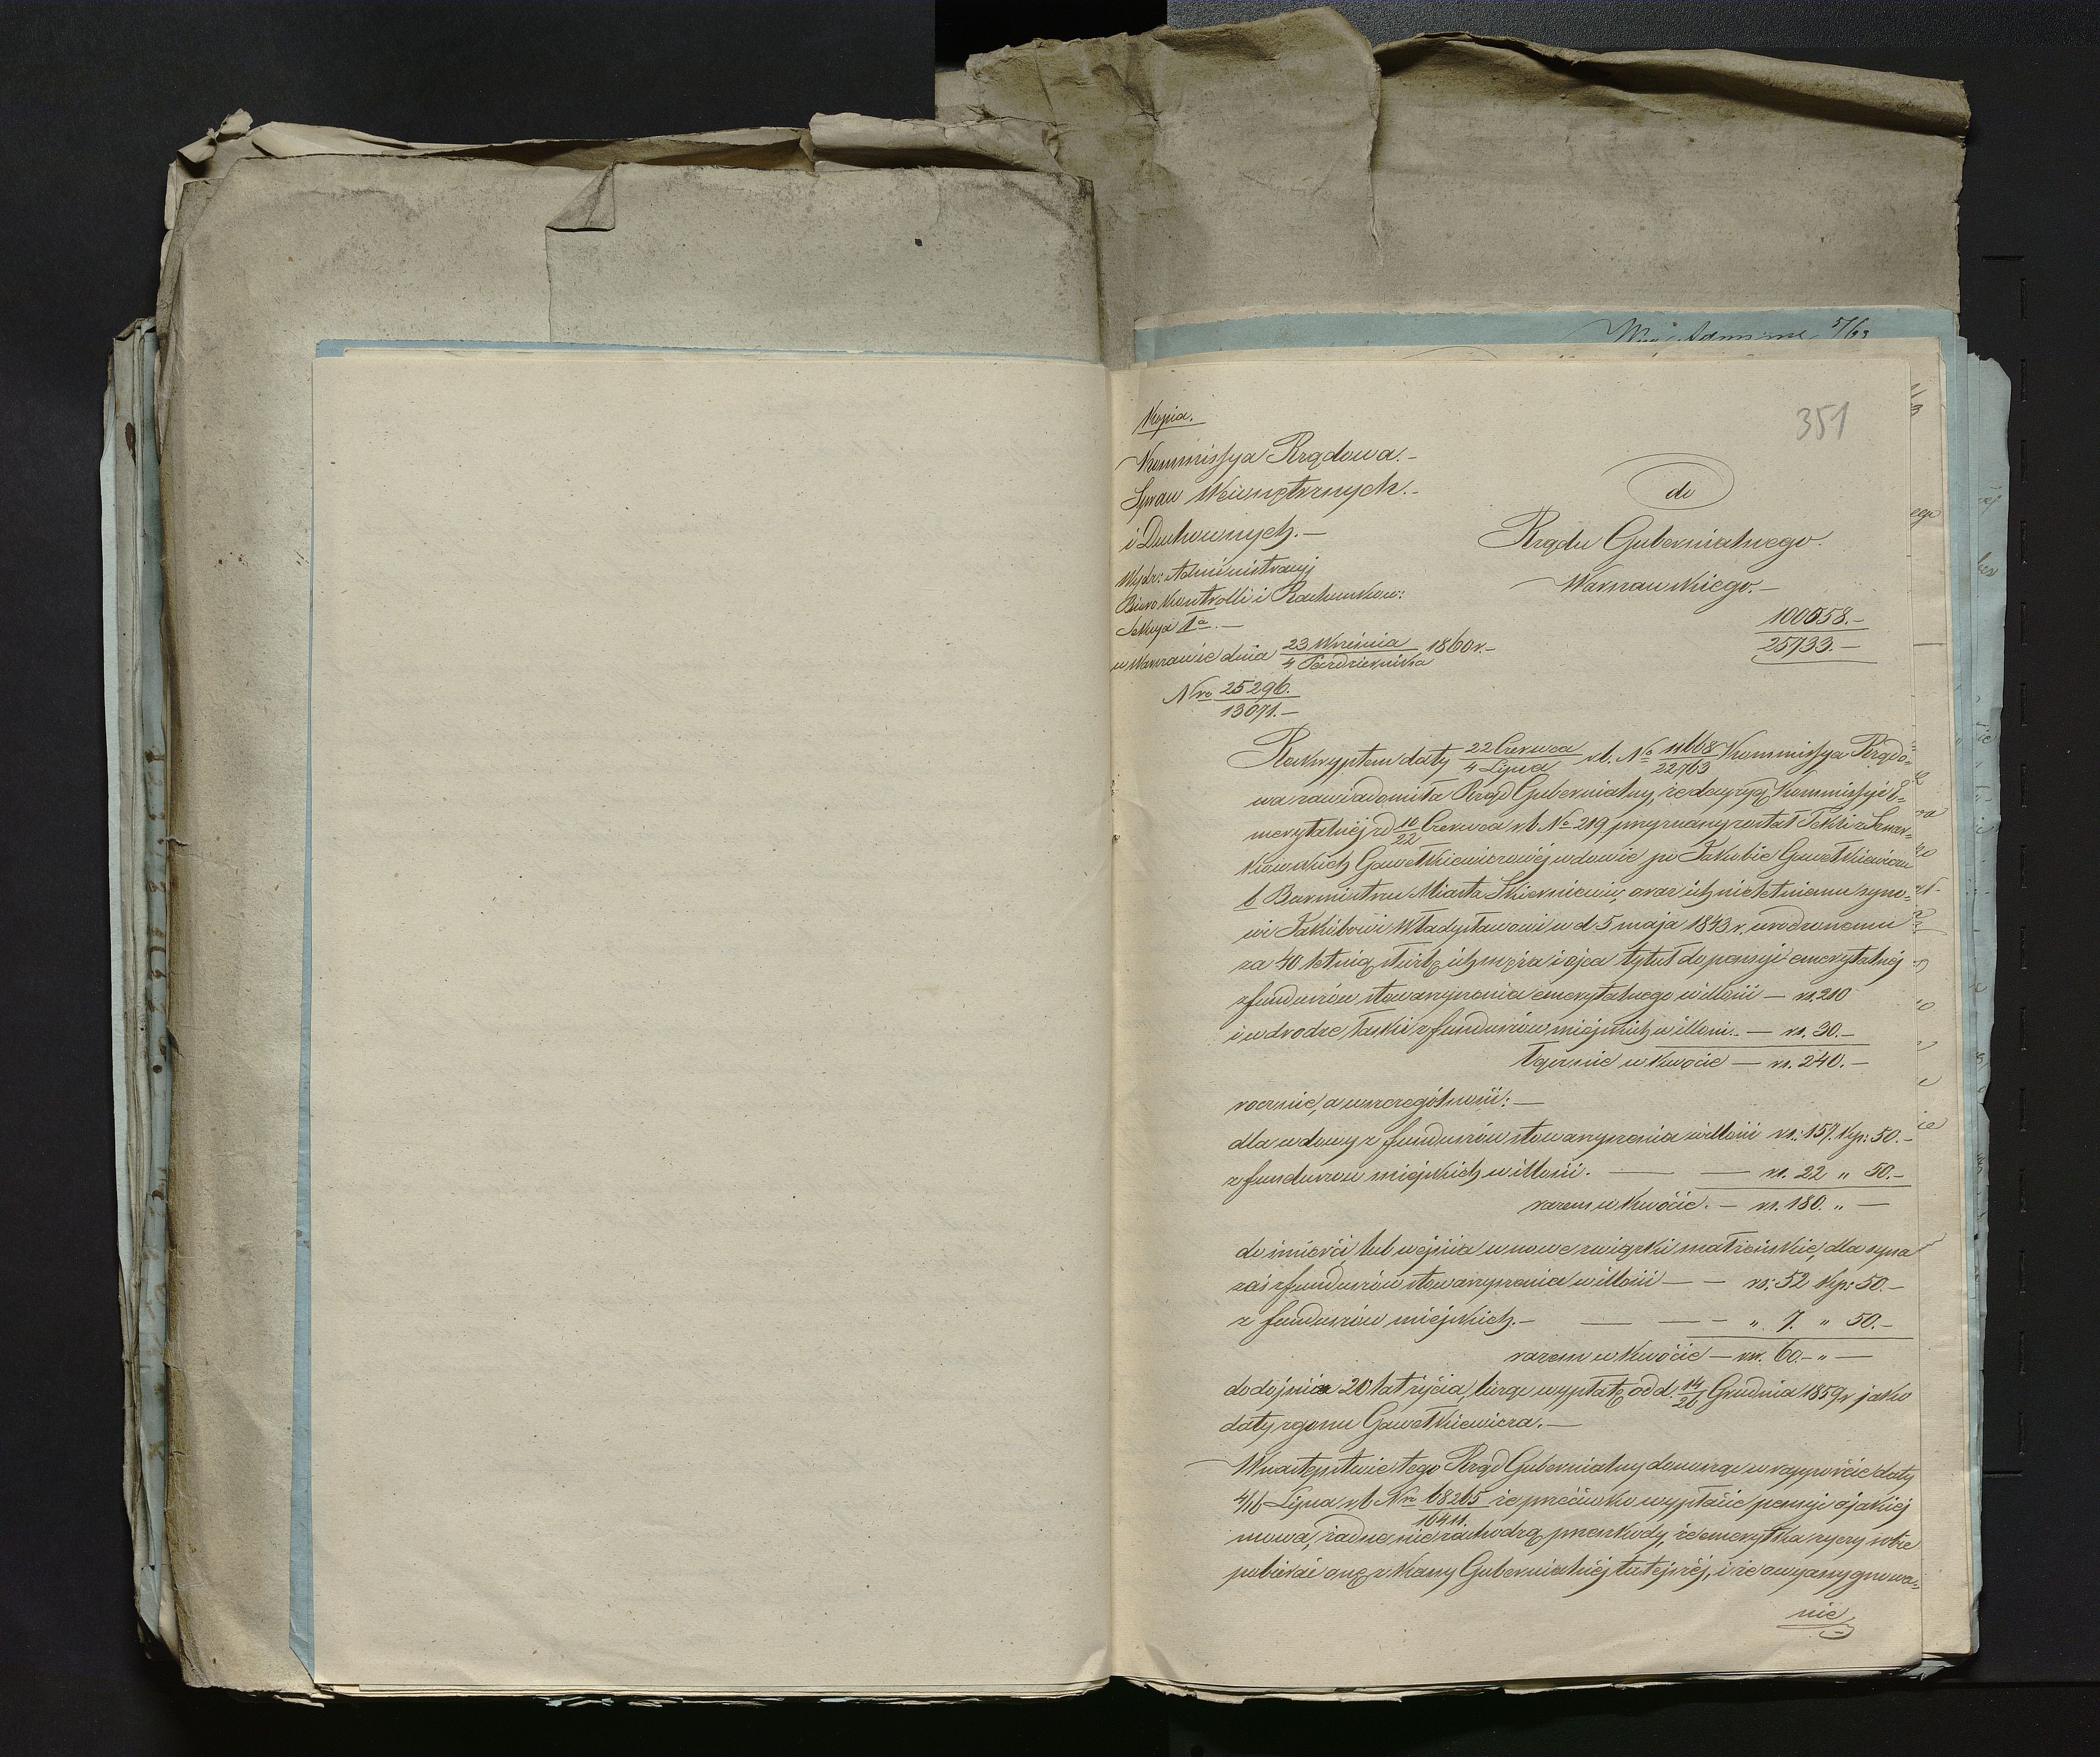 351
Kopia.
Kommissya Rządowa.-
Spraw Wewnętrznych.-
i Duchownych.-
Wydz: Administracyj
Biuro Kontrolli i Rachunkow:
Sekcya 1a.-
w Warszawie dnia 23 Września / 4 Października 1860 r.-
Nro 25296. / 13071.-
do
Rządu Gubernialnego
Warszawskiego.-
100058.-
25733.-
Reskryptem daty 22 Czerwca / 4 Lipca r.b. No 11668 / 22763 Kommissya Rządo=
wa zawiadomiła Rząd Gubernialny, że decyzyą Kommissyi E=
merytalnéj z d 10/22 Czerwca r b No 219 przyznany został Tekli z
Gawełkiewiczowéj wdowie po Jakóbie Gawełkiewiczu
b Burmistrzu Miasta Skierniewic, oraz ich nieletniemu syno=
wi Jakóbowi Władysławowi w d 5 maja 1843 r. urodzonemu
za 40 letnią służbę ich męża i ojca tytuł do pensyi emerytalnéj
z funduszów stowarzyszenia emerytalnego w illości — rs. 210
i w drodze łaski z funduszów miejskich w illości.- — rs. 30.-
łącznie w kwocie — rs. 240.-
rocznie, a w szczególności:—
dla wdowy z funduszów stowarzyszenia w illości rs: 157. kop: 50.-
z funduszów miejskich w illości. — — rs. 22 " 50.-
razem w kwocie. — rs. 180. " —
do śmierci lub wejścia w nowe związki małżeńskie, dla syna
zaś z funduszów stowarzyszenia w illości — — rs: 52 kop: 50.-
z funduszów miejskich.- — — " 7. " 50.-
razem w kwocie — rs. 60.- " —
do dojścia 20 lat życia, licząc wypłatę od d. 14/26 Grudnia 1859 r jako
daty zgonu Gawełkiewicza.—
W następstwie tego Rząd Gubernialny donosząc w rapporcie daty
4/16 Lipca r.b Nro 68265 / 16411. że przeciwko wypłacie pensyi o jakiej
mowa, żadne nie zachodzą przeszkody, że emerytka życzy sobie
pobierać onę z Kassy Gubernialnéj tutejszéj, i że o wyassygnowa=
nie